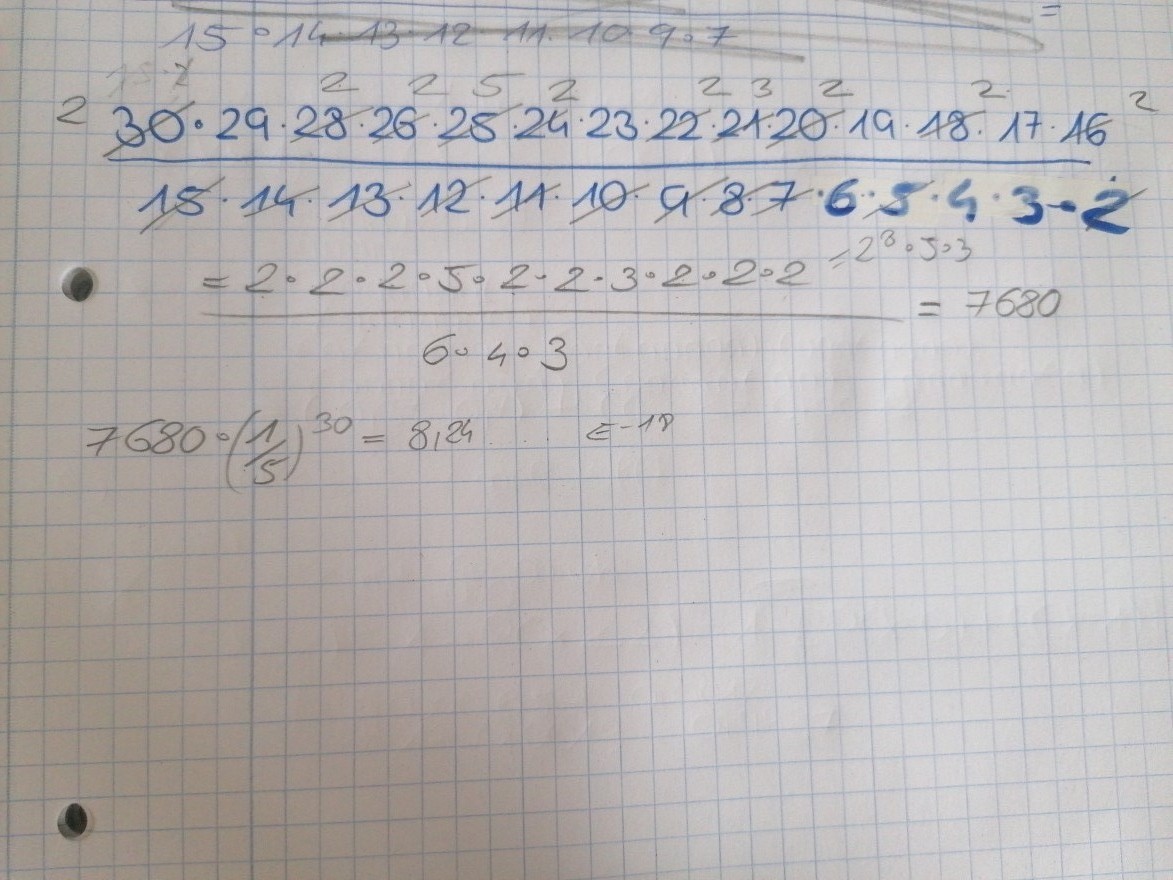 =
15 · 14 · 13 · 12 · 11 · 10 · 9 · 7
2 2 5 2 2 3 2 2 2
2 30 · 29 · 28 · 26 · 25 · 24 · 23 · 22 · 21 · 20 · 19 · 18 · 17 · 16
15 · 14 · 13 · 12 · 11 · 10 · 9 · 8 · 7 · 6 · 5 · 4 · 3 · 2
= 2 · 2 · 2 · 5 · 2 · 2 · 3 · 2 · 2 · 2 = 2⁸ · 5 · 3
= 7680
6 · 4 · 3
7680 · (1/5)³⁰ = 8,24 ..... E⁻¹⁸